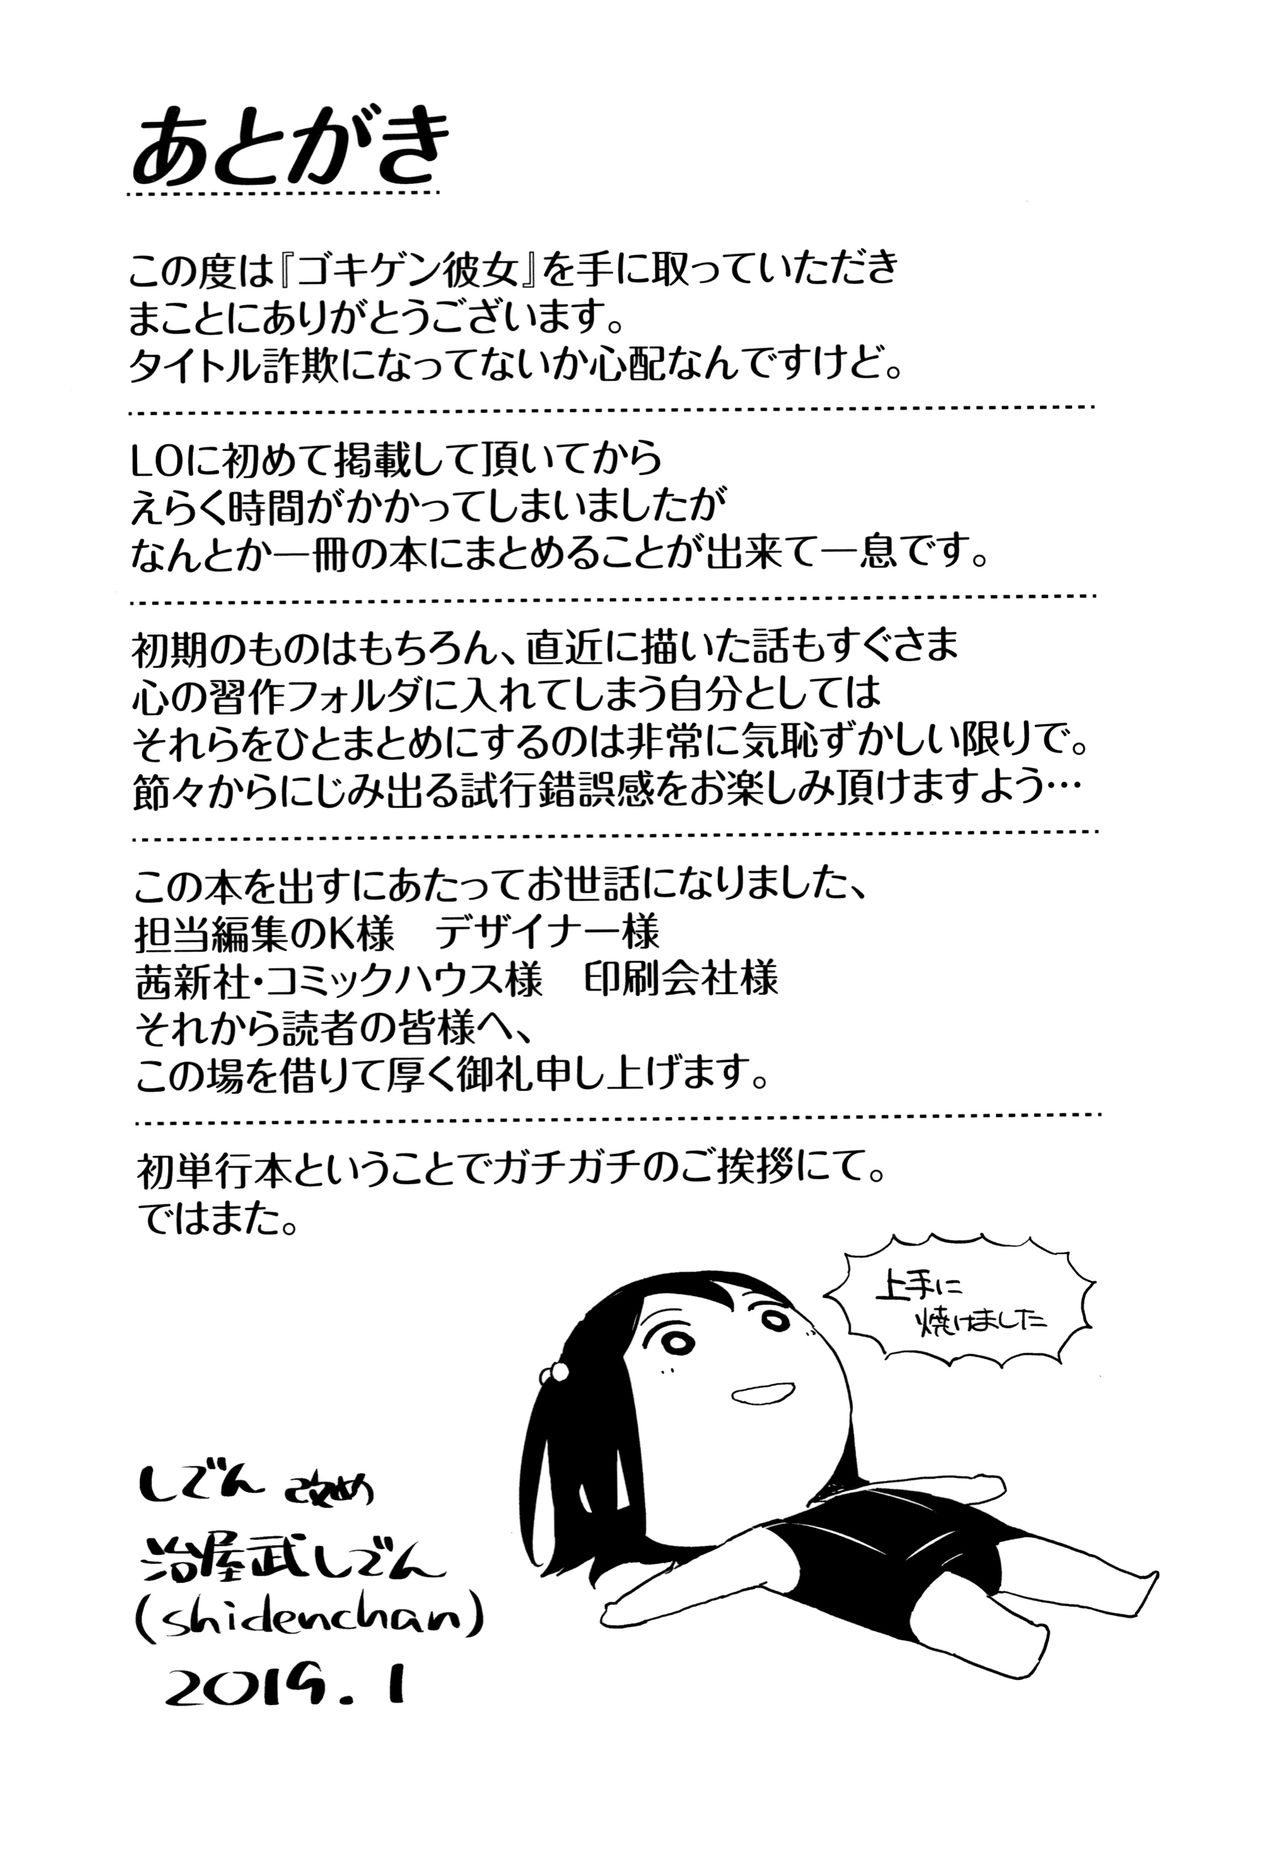 あとがき
この度は『ゴキゲン彼女』を手に取っていただき
まことにありがとうございます。
タイトル詐欺になってないか心配なんですけど。
LOに初めて掲載して頂いてから
えらく時間がかかってしまいましたが
なんとか一冊の本にまとめることが出来て一息です。
初期のものはもちろん、直近に描いた話もすぐさま
心の習作フォルダに入れてしまう自分としては
それらをひとまとめにするのは非常に気恥ずかしい限りで。
節々からにじみ出る試行錯誤感をお楽しみ頂けますよう…
この本を出すにあたってお世話になりました、
担当編集のK様　デザイナー様
茜新社・コミックハウス様　印刷会社様
それから読者の皆様へ、
この場を借りて厚く御礼申し上げます。
初単行本ということでガチガチのご挨拶にて。
ではまた。
上手に
焼けました
しでん 改め
治屋武しでん
(shidenchan)
2019.1